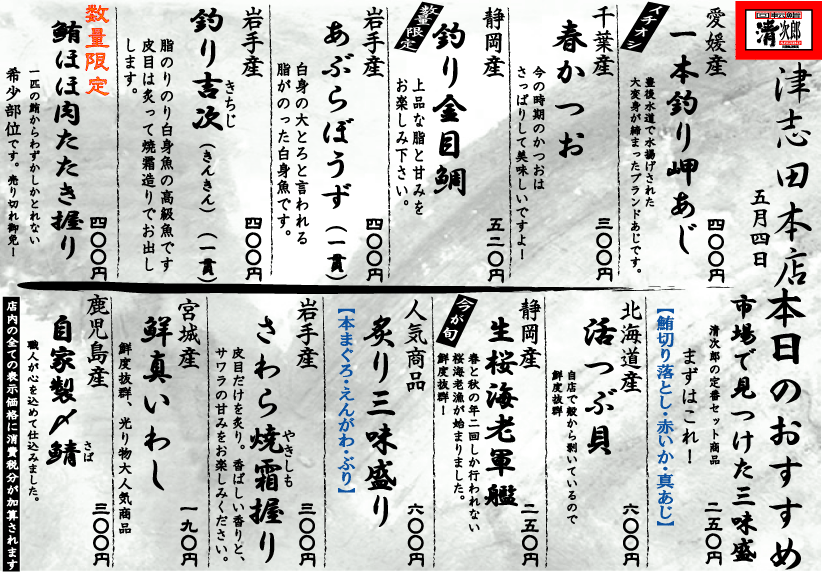 清次郎
津志田本店
五月四日
本日のおすすめ
愛媛産
イチオシ
一本釣り岬あじ
豊後水道で水揚げされた
大変身が締まったブランドあじです。
四〇〇円
千葉産
春かつお
今の時期のかつおは
さっぱりして美味しいですよー
三〇〇円
静岡産
数量限定
釣り金目鯛
上品な脂と甘みを
お楽しみ下さい。
五二〇円
岩手産
あぶらぼうず(一貫)
白身の大とろと言われる
脂がのった白身魚です。
四〇〇円
岩手産
釣り吉次(きんきん)(一貫)
きちじ
脂のりのり白身魚の高級魚です
皮目は炙って焼霜造りでお出し
します。
四〇〇円
数量限定
鮪ほほ肉たたき握り
一匹の鮪からわずかしかとれない
希少部位です。売り切れ御免ー
四〇〇円
市場で見つけた三味盛
清次郎の定番セット商品
二五〇円
まずはこれ！
【鮪切り落とし・赤いか・真あじ】
北海道産
活つぶ貝
自店で殻から剥いているので
鮮度抜群
六〇〇円
静岡産
今が旬
生桜海老軍艦
春と秋の年二回しか行われない
桜海老漁が始まりました。
鮮度抜群！
二五〇円
人気商品
炙り三味盛り
【本まぐろ・えんがわ・ぶり】
六〇〇円
岩手産
さわら焼霜握り
やきしも
皮目だけを炙り。香ばしい香りと、
サワラの甘みをお楽しみください。
三〇〇円
宮城産
鮮真いわし
鮮度抜群、光り物大人気商品
一九〇円
鹿児島産
自家製〆鯖
さば
職人が心を込めて仕込みました。
三〇〇円
店内の全ての表示価格に消費税分が加算されます